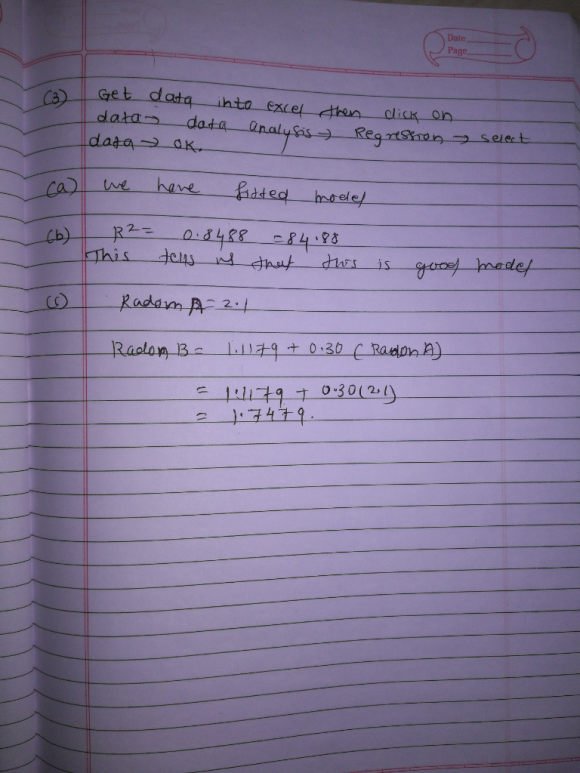 Date
Page
(3) Get data into excel then click on
data → data analysis → Regression → select
data → OK.
(a) we have fitted model
(b) R² = 0.8488 = 84.88
This tells us that this is good model
(c) Radom A = 2.1
Radom B = 1.1179 + 0.30 (Radon A)
= 1.1179 + 0.30(2.1)
= 1.7479.